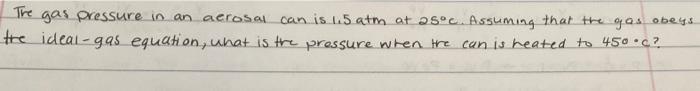 The gas pressure in an aerosal can is 1.5 atm at 25°C. Assuming that the gas obeys
the ideal-gas equation, what is the pressure when the can is heated to 450°C?